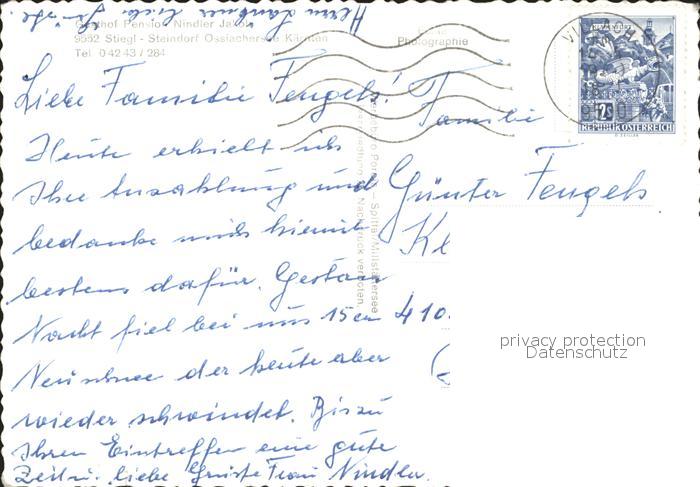 Gasthof Pension Nindler Jakob
9552 Stiegl - Steindorf Ossiachersee Kärnten
Tel 0 42 43 / 284
Photographie
Liebe Familie Fengels!
Heute erhielt ich
Ihre Anzahlung und
bedanke mich hiemit
bestens dafür. Gestern
Nacht fiel bei uns 15 cm
Neuschnee der heute aber
wieder schwindet. Bis zu
Ihren Eintreffen eine gute
Zeit u. liebe Grüsse Frau Nindler.
Spittal/Millstättersee
Nachdruck verboten.
Familie
Günter Fengels
Kl
410
2S
REPUBLIK ÖSTERREICH
privacy protection
Datenschutz